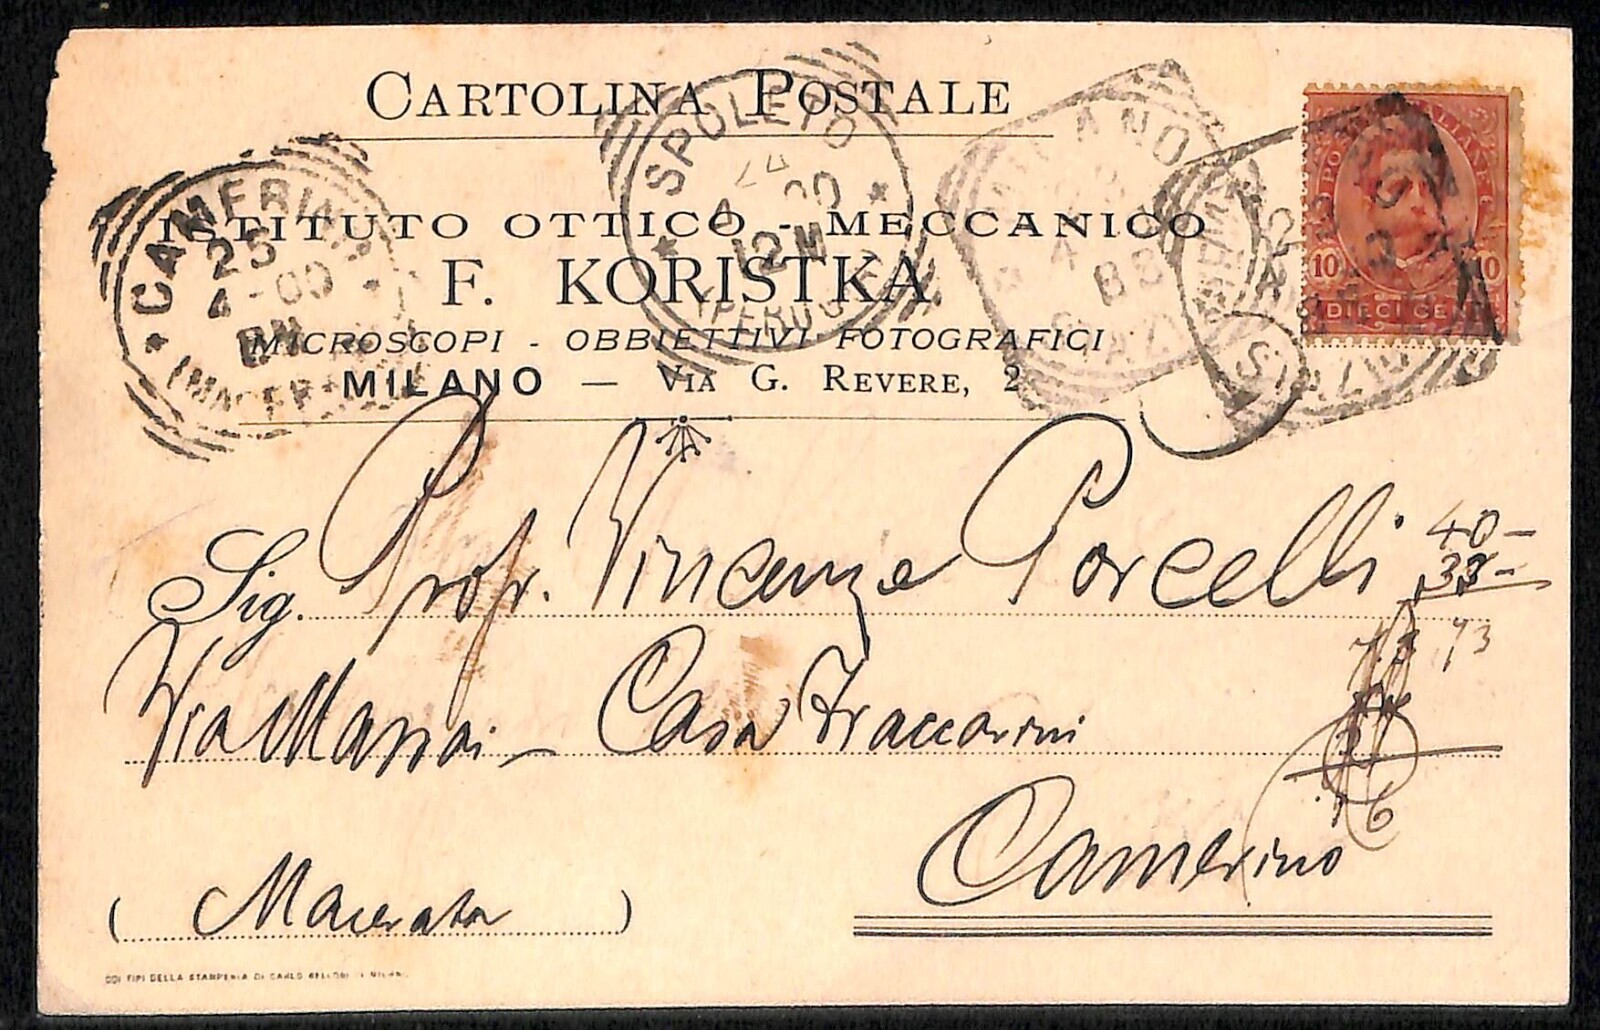 CARTOLINA POSTALE
ISTITUTO OTTICO - MECCANICO
F. KORISTKA
MICROSCOPI - OBBIETTIVI FOTOGRAFICI
MILANO — VIA G. REVERE, 2
SPOLETO
24
4 00
12 M
(PERUGIA)
CAMERINO
25
4 - 00
8 M
(MACERATA)
MILANO
4
8 S
STAZ
10 10
DIECI CENT
Sig. Prof. Vincenzo Porcelli
Via Massai - Casa Zraccarini
Camerino
( Macerata )
40 -
33 -
73
6
COI TIPI DELLA STAMPERIA DI CARLO BELLONI IN MILANO